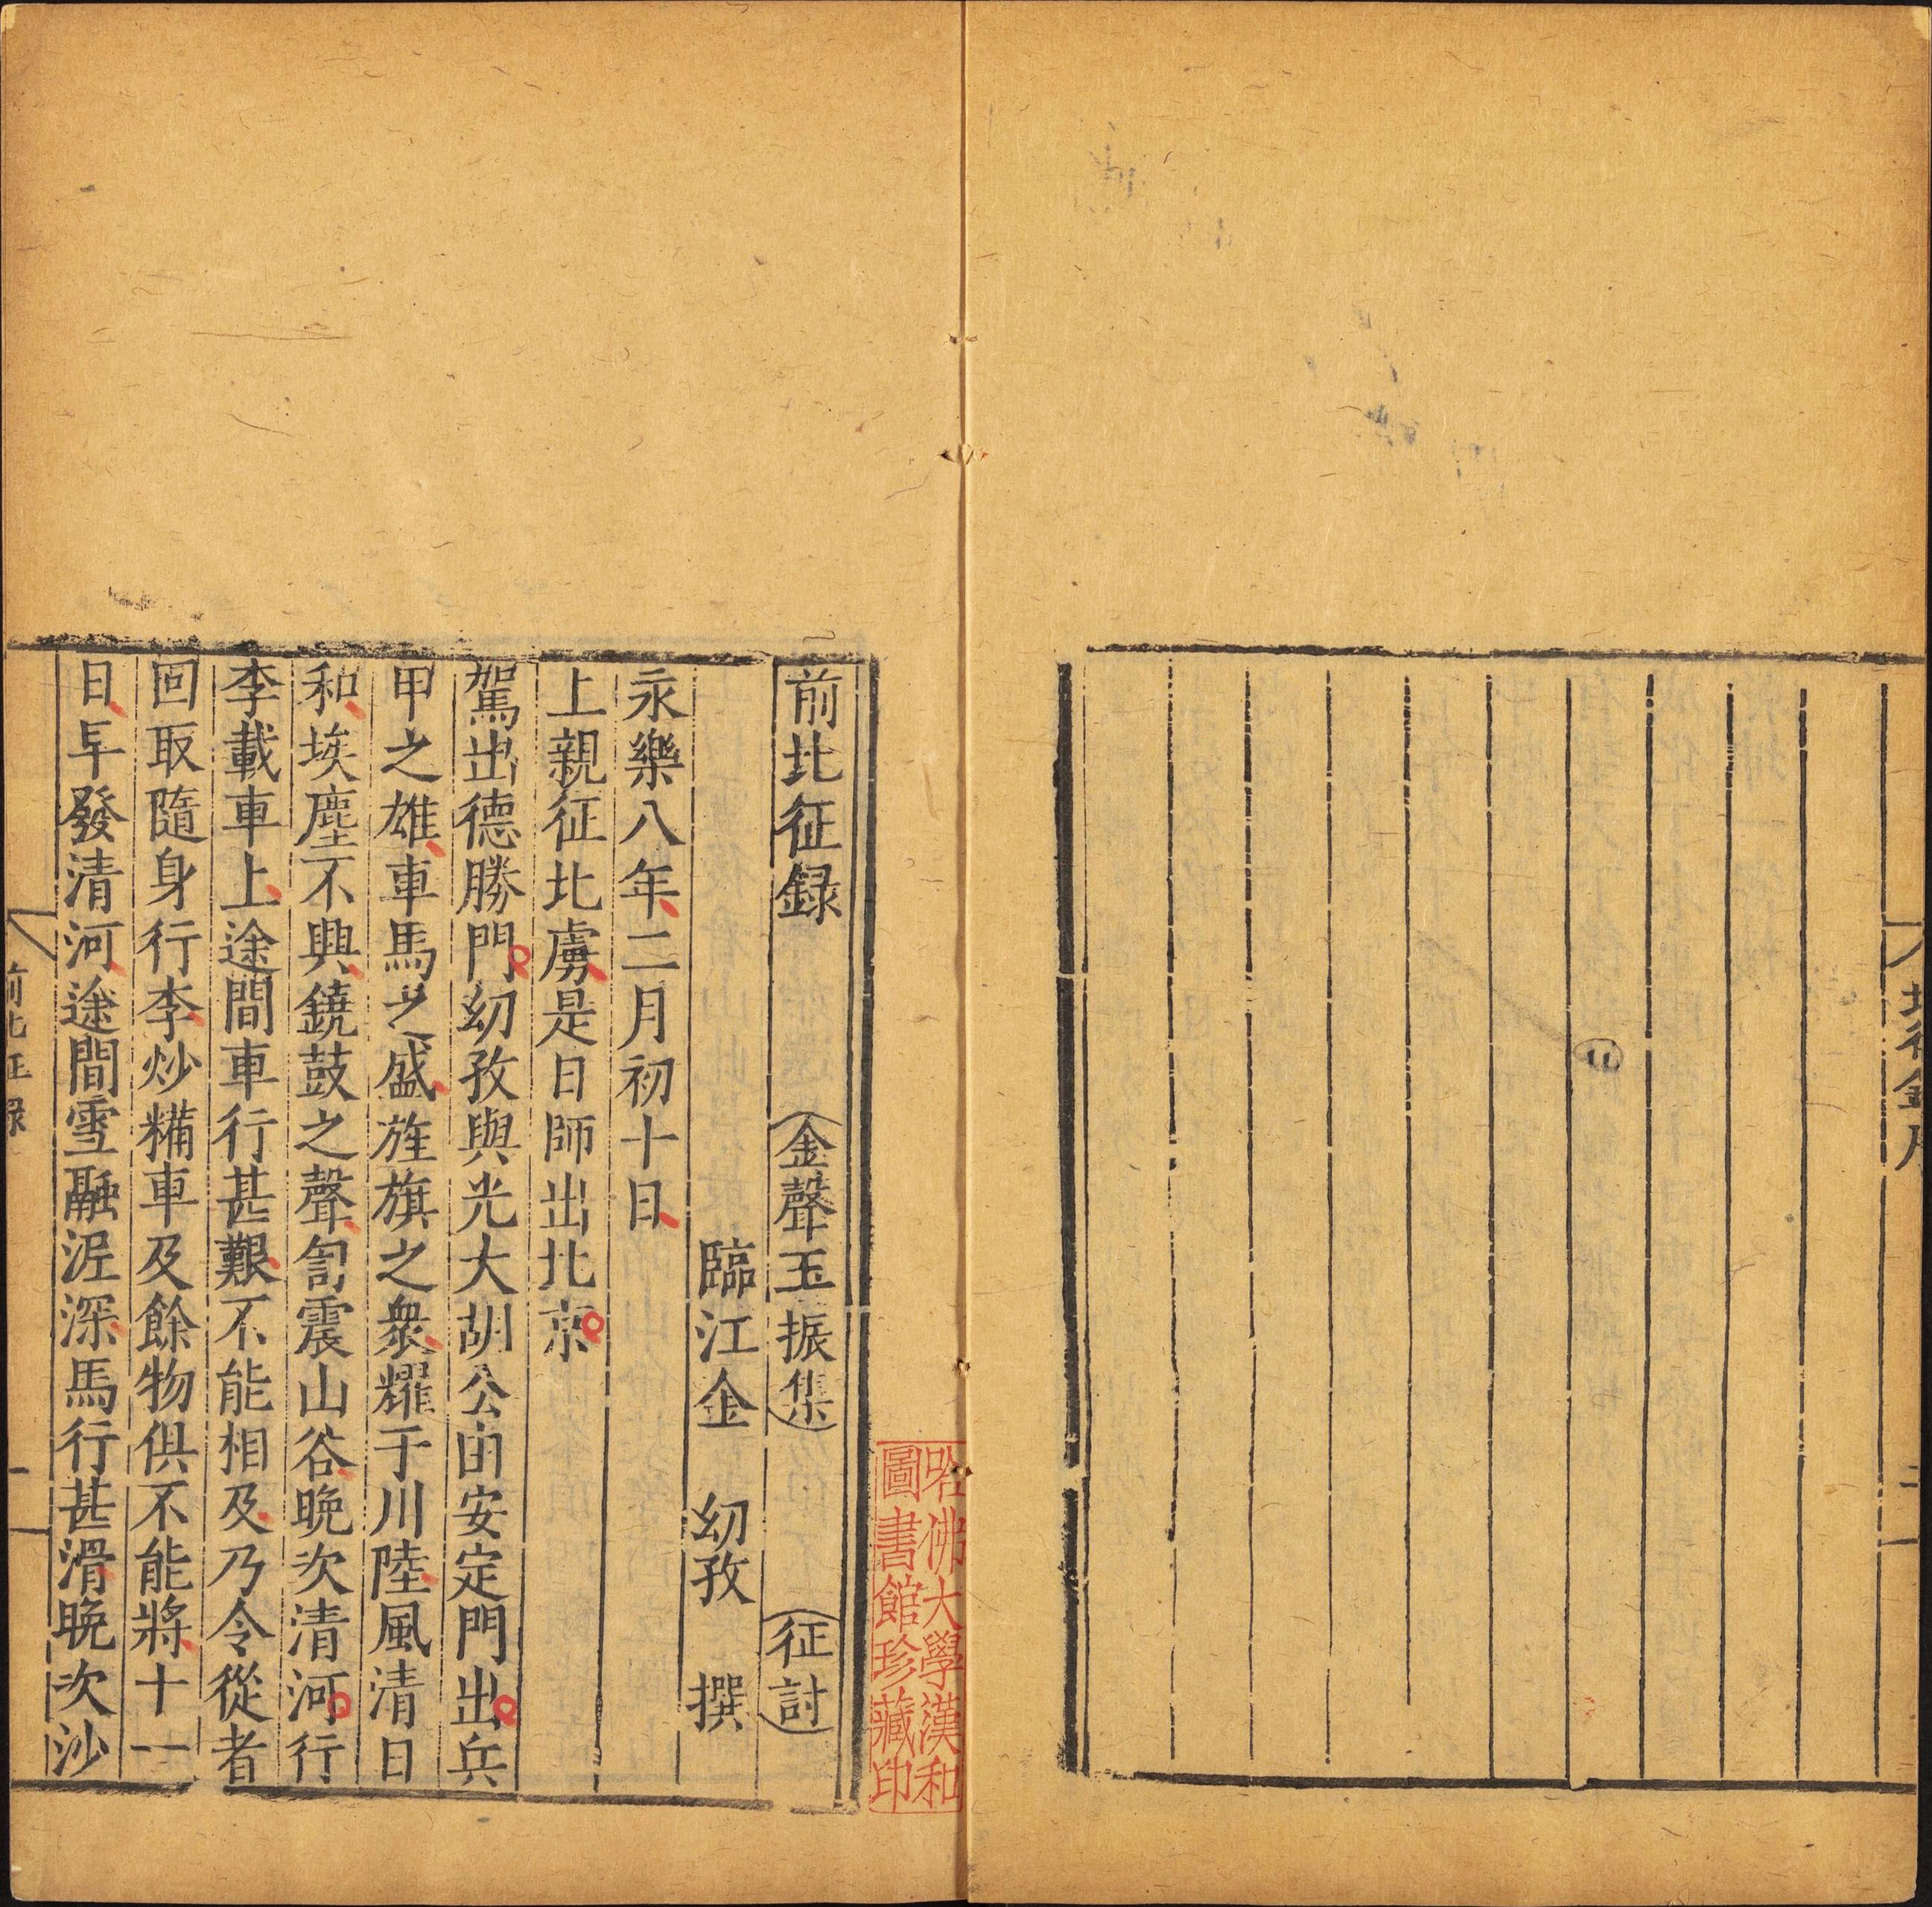 前北征録 金聲玉振集 征討
臨江金 幼孜 撰
永樂八年二月初十日
上親征北虜是日師出北京
駕出德勝門幼孜與光大胡公由安定門出兵
甲之雄車馬之盛旌旗之衆耀于川陸風清日
和埃塵不興鐃鼓之聲訇震山谷晩次清河行
李載車上途間車行甚艱不能相及乃令從者
回取隨身行李炒糒車及餘物俱不能將十一
日早發清河途間雪融泥深馬行甚滑晩次沙
前北征録
一
哈佛大學漢和
圖書館珍藏印